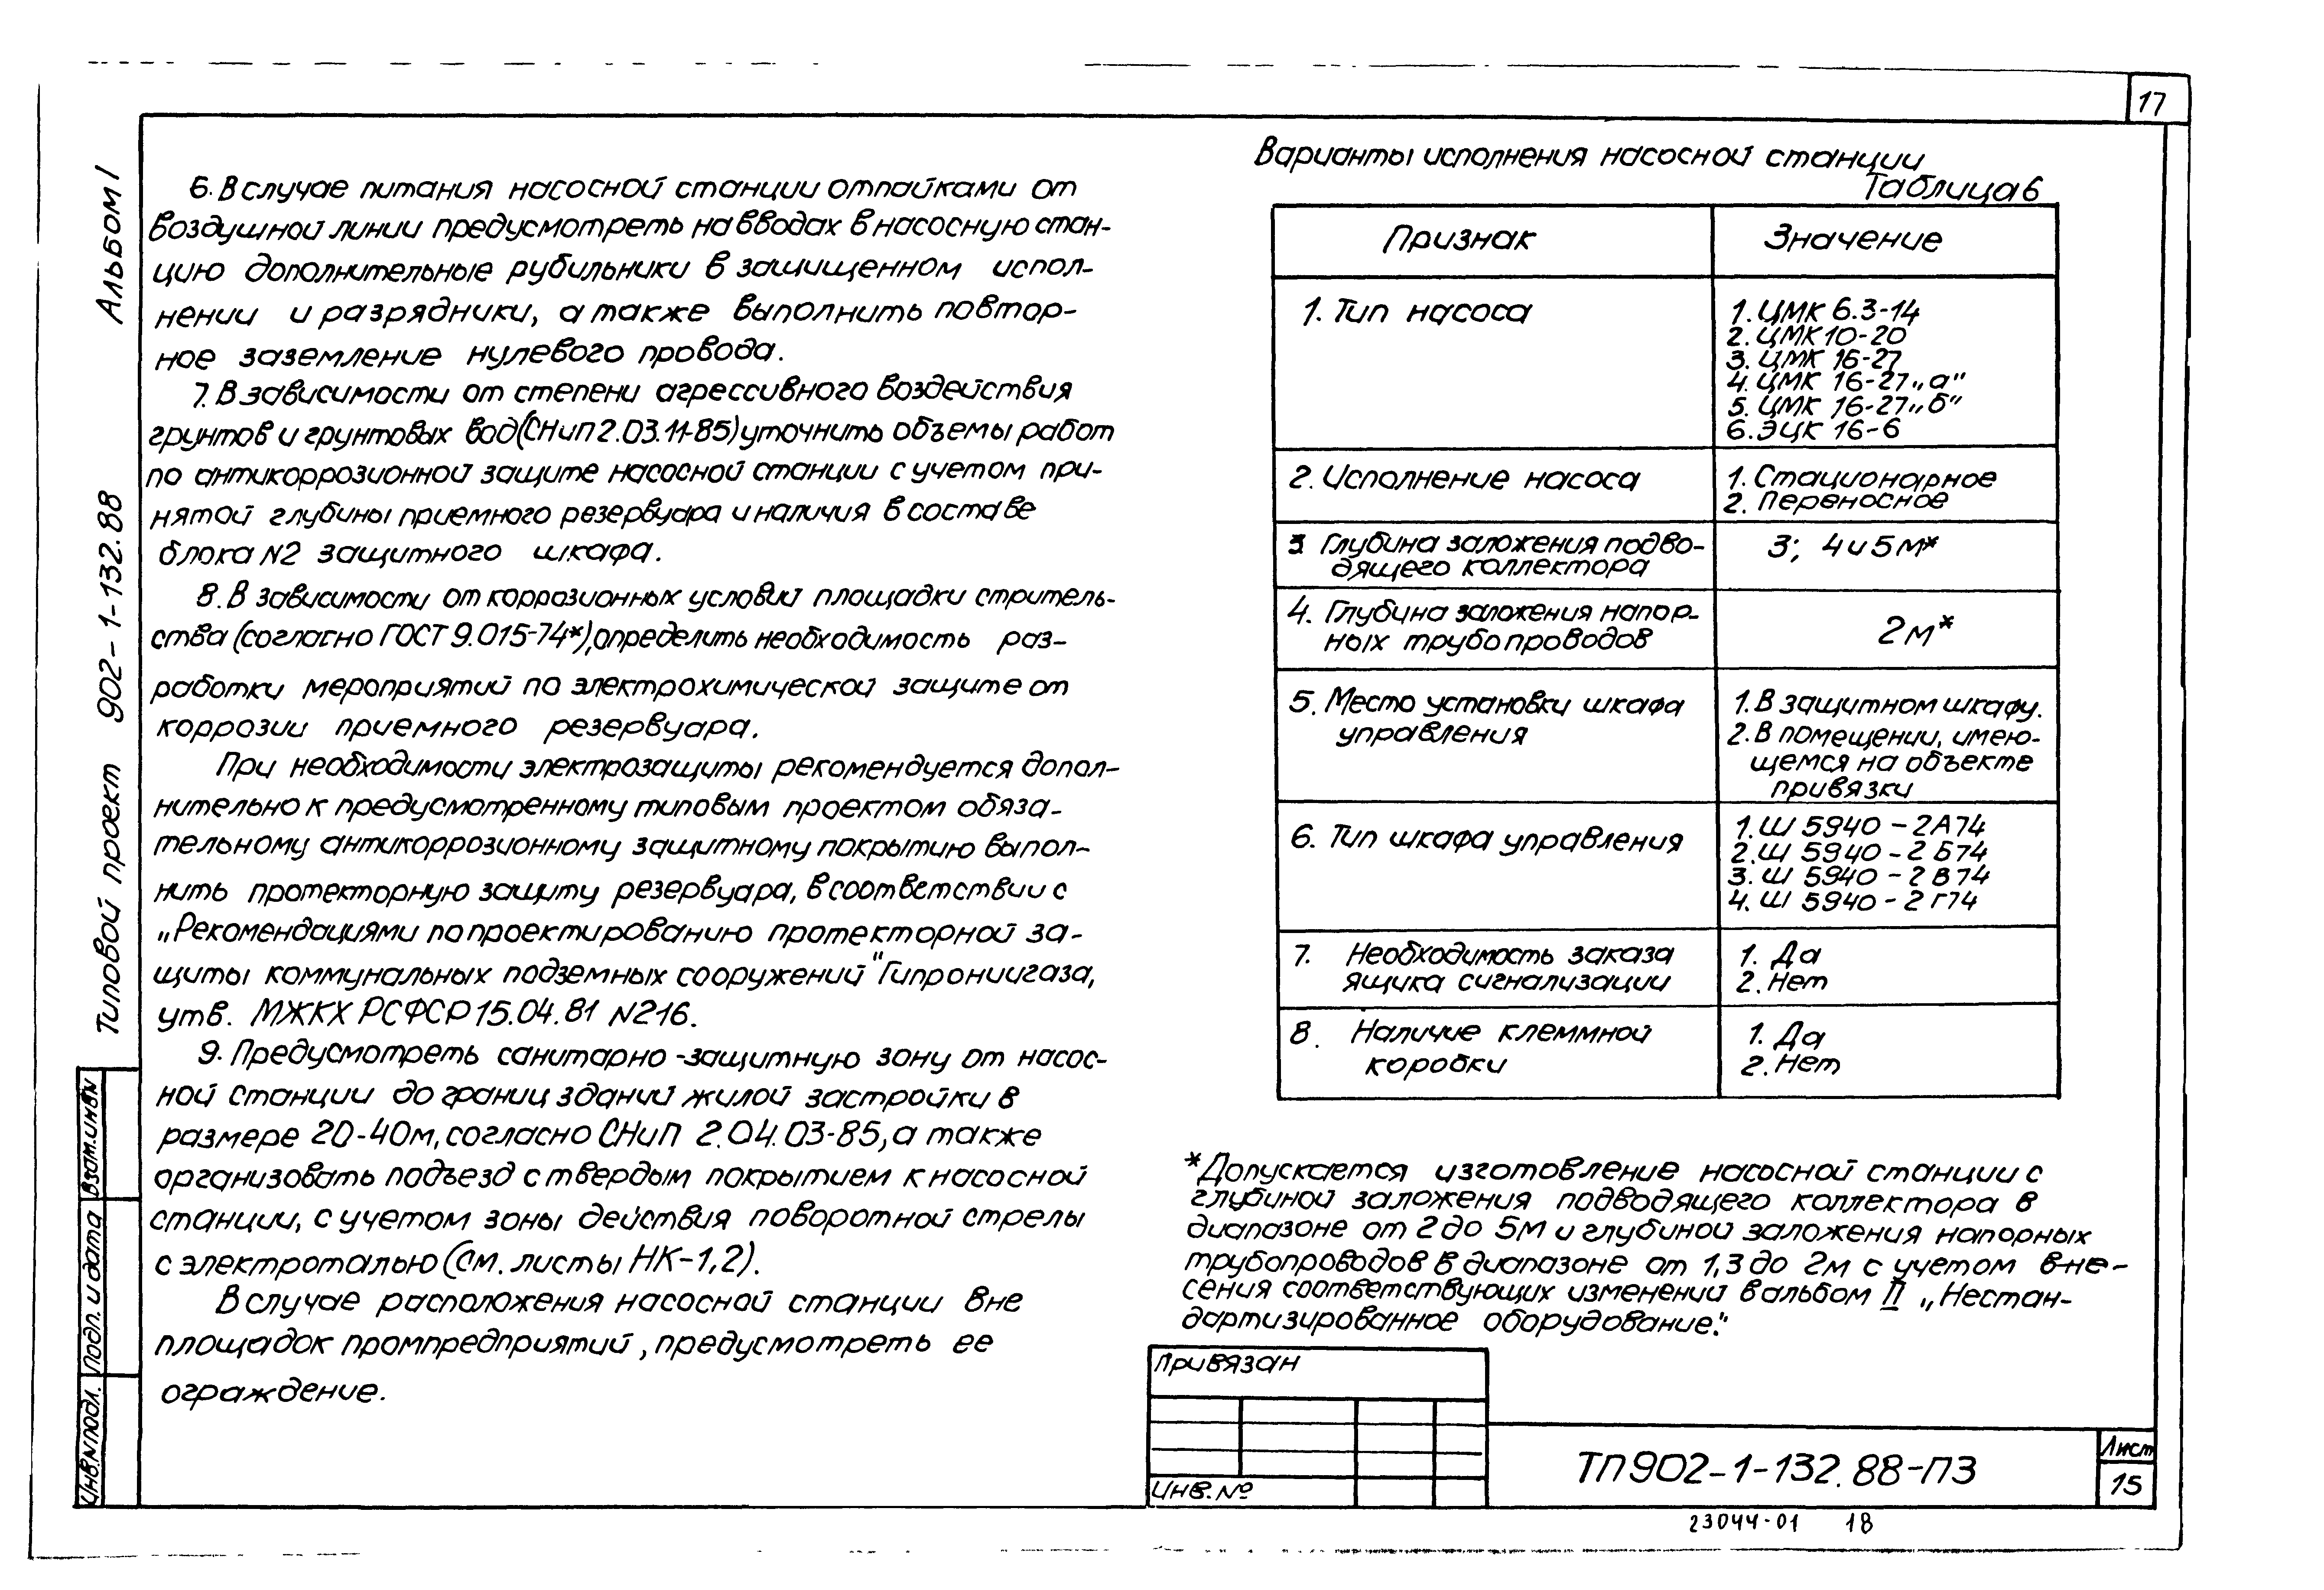 17
Альбом I
Типовой проект 902-1-132.88
Взам.инв.N
Подп. и дата
Инв.N подл.
6. В случае питания насосной станции отпайками от
воздушной линии предусмотреть на вводах в насосную стан-
цию дополнительные рубильники в защищенном испол-
нении и разрядники, а также выполнить повтор-
ное заземление нулевого провода.
7. В зависимости от степени агрессивного воздействия
грунтов и грунтовых вод (СНиП 2.03.11-85) уточнить объемы работ
по антикоррозионной защите насосной станции с учетом при-
нятой глубины приемного резервуара и наличия в составе
блока N2 защитного шкафа.
8. В зависимости от коррозионных условий площадки стритель-
ства (согласно ГОСТ 9.015-74*), определить необходимость раз-
работки мероприятий по электрохимической защите от
коррозии приемного резервуара.
При необходимости электрозащиты рекомендуется допол-
нительно к предусмотренному типовым проектом обяза-
тельному антикоррозионному защитному покрытию выпол-
нить протекторную защиту резервуара, в соответствии с
„Рекомендациями по проектированию протекторной за-
щиты коммунальных подземных сооружений" Гипрониигаза,
утв. МЖКХ РСФСР 15.04.81 N216.
9. Предусмотреть санитарно-защитную зону от насос-
ной станции до границ зданий жилой застройки в
размере 20-40м, согласно СНиП 2.04.03-85, а также
организовать подъезд с твердым покрытием к насосной
станции, с учетом зоны действия поворотной стрелы
с электроталью (см. листы НК-1,2).
В случае расположения насосной станции вне
площадок промпредприятий, предусмотреть ее
ограждение.
Варианты исполнения насосной станции
Таблица 6
Признак Значение
1. Тип насоса
1. ЦМК 6.3-14
2. ЦМК 10-20
3. ЦМК 16-27
4. ЦМК 16-27 „а"
5. ЦМК 16-27 „б"
6. ЭЦК 16-6
2. Исполнение насоса
1. Стационарное
2. Переносное
3 Глубина заложения подво-
дящего коллектора
3; 4 и 5м*
4. Глубина заложения напор-
ных трубопроводов
2м*
5. Место установки шкафа
управления
1. В защитном шкафу.
2. В помещении, имею-
щемся на объекте
привязки
6. Тип шкафа управления
1. Ш 5940-2А74
2. Ш 5940-2Б74
3. Ш 5940-2В74
4. Ш 5940-2Г74
7. Необходимость заказа
ящика сигнализации
1. Да
2. Нет
8. Наличие клеммной
коробки
1. Да
2. Нет
*Допускается изготовление насосной станции с
глубиной заложения подводящего коллектора в
диапазоне от 2 до 5м и глубиной заложения напорных
трубопроводов в диапазоне от 1,3 до 2м с учетом вне-
сения соответствующих изменений в альбом II „Нестан-
дартизированное оборудование."
Привязан
Инв.№
ТП 902-1-132.88-ПЗ
Лист
15
23044-01 18